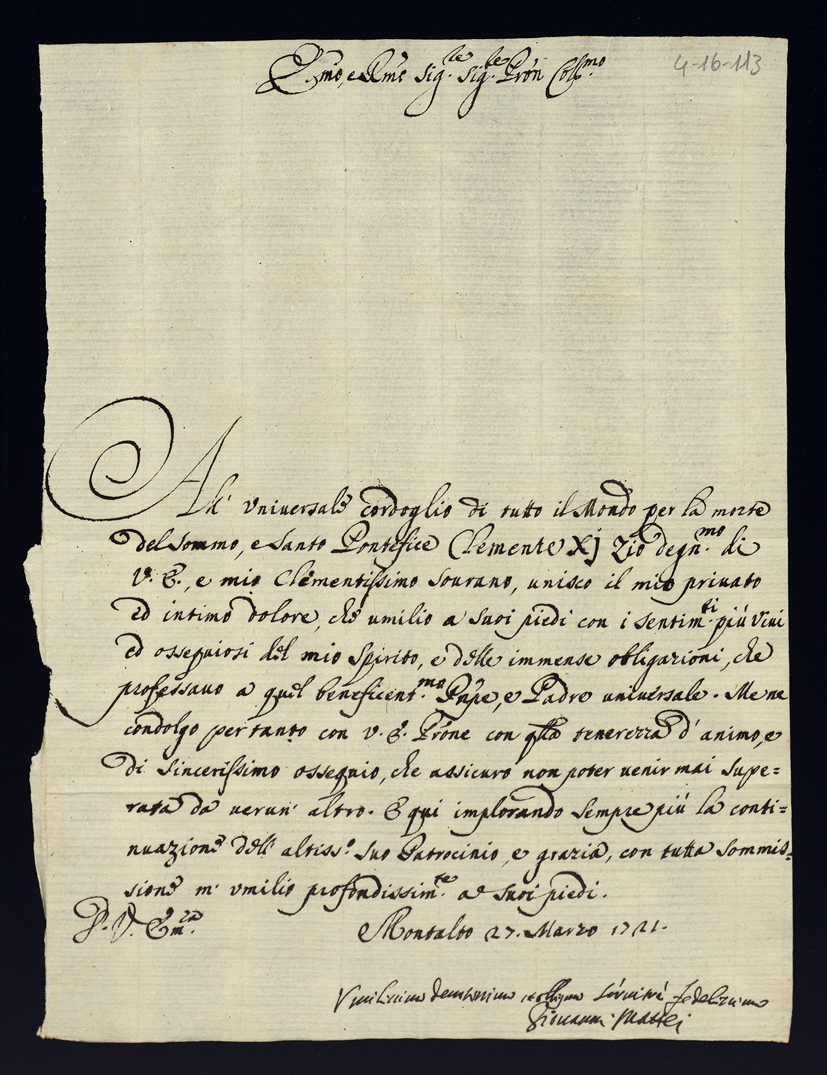 Emo, e Rmo Sig.re Sig.re Prōn Coll.mo
4-16-113
All' Vniversale cordoglio di tutto il Mondo per la morte
del Sommo, e Santo Pontefice Clemente XJ Zio degn.mo di
V. E., e mio Clementissimo Sourano, unisco il mio privato
ed intimo dolore, che umilio a suoi piedi con i sentim.ti più vivi
ed ossequiosi del mio Spirito, e delle immense obligazioni, che
professavo a quel beneficent.mo Pnpe, e Padre universale. Me ne
condolgo per tanto con V. E. Prōne con qlla tenerezza d'animo, e
di sincerissimo ossequio, che assicuro non poter venir mai supe=
rata da verun' altro. E qui implorando sempre più la conti=
nuazione dell' altiss.o suo Patrocinio, e grazia, con tutta sommis=
sione m' vmilio profondissim.te a suoi piedi.
D. V. Em.za
Montalto 27. Marzo 1721.
Vmilissimo Deuotissimo Servitre Fedelissimo
Giovanni Mattei